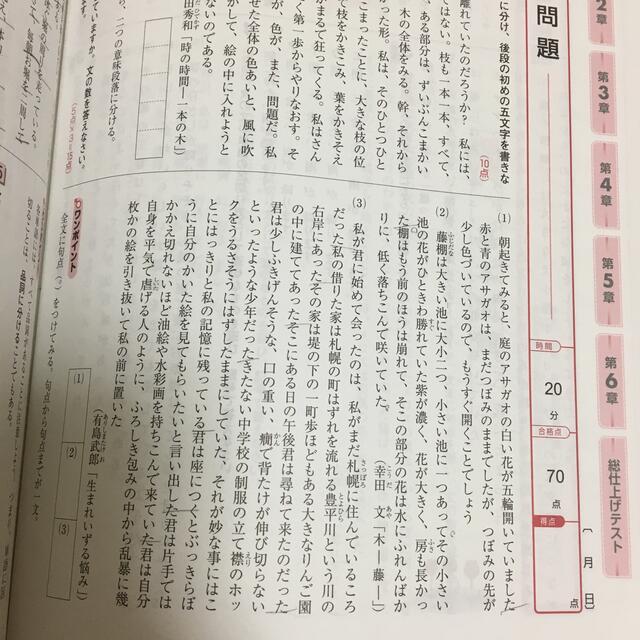 2章
第3章
第4章
第5章
第6章
総仕上げテスト
問題
時間
20
分
合格点
70
点
得点
点
〔 月 日〕
に分け、後段の初めの五文字を書きな
(10点)
離れていたのだろうか? 私には、
はない。枝も一本一本、すべて、
、ある部分は、ずいぶんこまかい
木の全体をみる。幹、それから
かった形。私は、そのひとつひと
こまったことに、大きな枝の位
で枝をかきこみ、葉をかきそえ
がまるで狂ってくる。私はさん
く第一歩からやりなおす。そ
が、色が、また、問題だ。私
せた全体の色あいと、風に吹
かして、絵の中に入れようと
ないのである。
田秀和「時の時間―一本の木」)
、二つの意味段落に分ける。
ていますか。文の数を答えなさい。
(5点×3=15点)
(1) 朝起きてみると、庭のアサガオの白い花が五輪開いていました
赤と青のアサガオは、まだつぼみのままでしたが、つぼみの先が
少し色づいているので、もうすぐ開くことでしょう
(2) 藤棚は大きい池に大小二つ、小さい池に一つあってその小さい
ふじだな
池の花がひときわ勝れていた紫が濃く、花が大きく、房も長かっ
すぐ
こ
ふさ
た棚はもう前のほうは崩れて、そこの部分の花は水にふれんばか
りに、低く落ちこんで咲いていた。
(幸田 文「木―藤―」)
こうだ
あや
(3) 私が君に始めて会ったのは、私がまだ札幌に住んでいるころ
さっぽろ
だった私の借りた家は札幌の町はずれを流れる豊平川という川の
とよひら
右岸にあったその家は堤の下の一町歩ほどもある大きなりんご園
の中に建ててあったそこにある日の午後君は尋ねて来たのだった
君は少しふきげんそうな、口の重い、癇で背たけが伸び切らない
かん
といったような少年だったきたない中学校の制服の立て襟のホッ
えり
クをうるさそうにはずしたままにしていた、それが妙な事にはこ
とにはっきりと私の記憶に残っている君は座につくとぶっきらぼ
うに自分のかいた絵を見てもらいたいと言い出した君は片手では
かかえ切れないほど油絵や水彩画を持ちこんで来ていた君は自分
自身を平気で虐げる人のように、ふろしき包みの中から乱暴に幾
枚かの絵を引き抜いて私の前に置いた
(有島武郎「生まれいずる悩み」)
ありしまたけお
(1)
(2)
(3)
ワンポイント
全文に句点(。)をつけてみる。句点から句点までが一文。